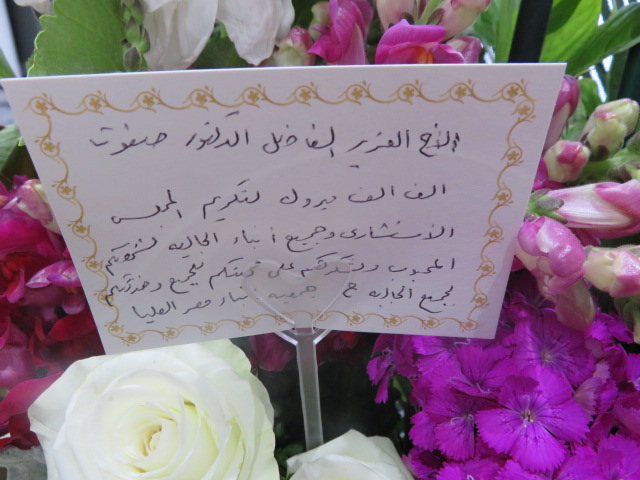 الأخ العزيز الفاضل الدكتور صفوت
الف الف مبروك لتكريم المجلس
الاستشارى وجميع أبناء الجاليه لشخصكم
المحبوب ونشكركم على محبتكم للجميع وخدمتكم
لجميع الجاليه جمعيه أبناء مصر العليا